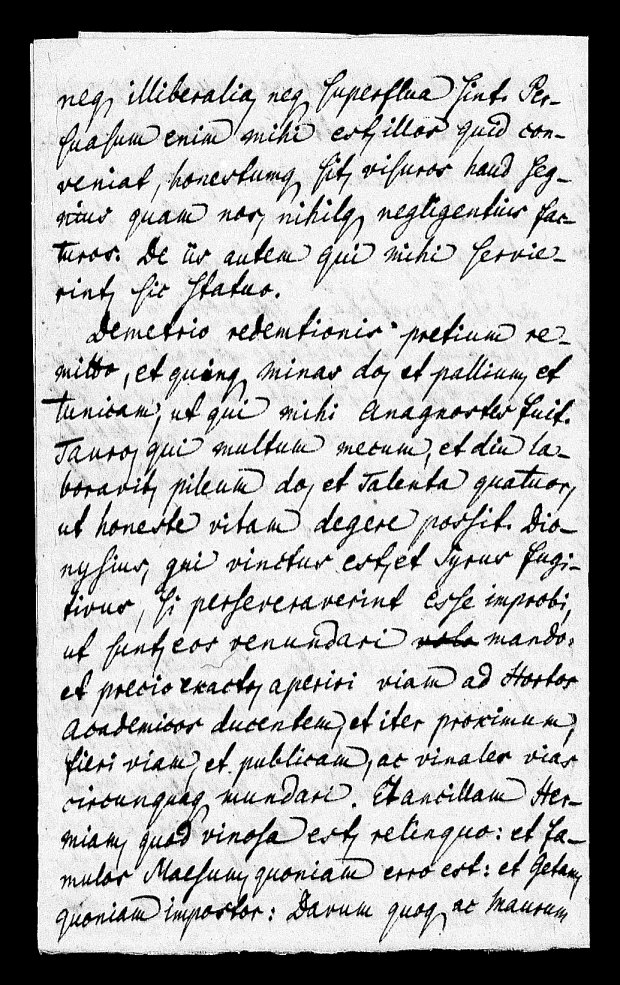 neq, illiberalia, neq, superflua sint. Per-
suasum enim mihi est, illos quid con-
veniat, honestumq, sit, visuros haud seg-
nius quam nos, nihilq, negligentius fac-
turos. De iis autem qui mihi servie-
rint, sic statuo.
Demetrio redemtionis pretium re-
mitto, et quinq, minas do, et pallium, et
tunicam, ut qui mihi Anagnostes fuit.
Tauro, qui multum mecum, et diu la-
boravit, pileum do, et Talenta quatuor,
ut honeste vitam degere possit. Dio-
nysius, qui vinctus est, et Syrus fugi-
tivus, si perseveraverint esse improbi,
ut sunt, eos venundari volo mando:
et precio exacto, aperiri viam ad Hortos
Academicos ducentem, et iter proximum,
fieri viam, et publicam, ac vinales vias
circunquaq, mundari. Et ancillam Her-
miam, quod vinosa est, relinquo: et fa-
mulos Maesum, quoniam erro est: et Getam,
quoniam impostor: Davum quoq, ac Maurum